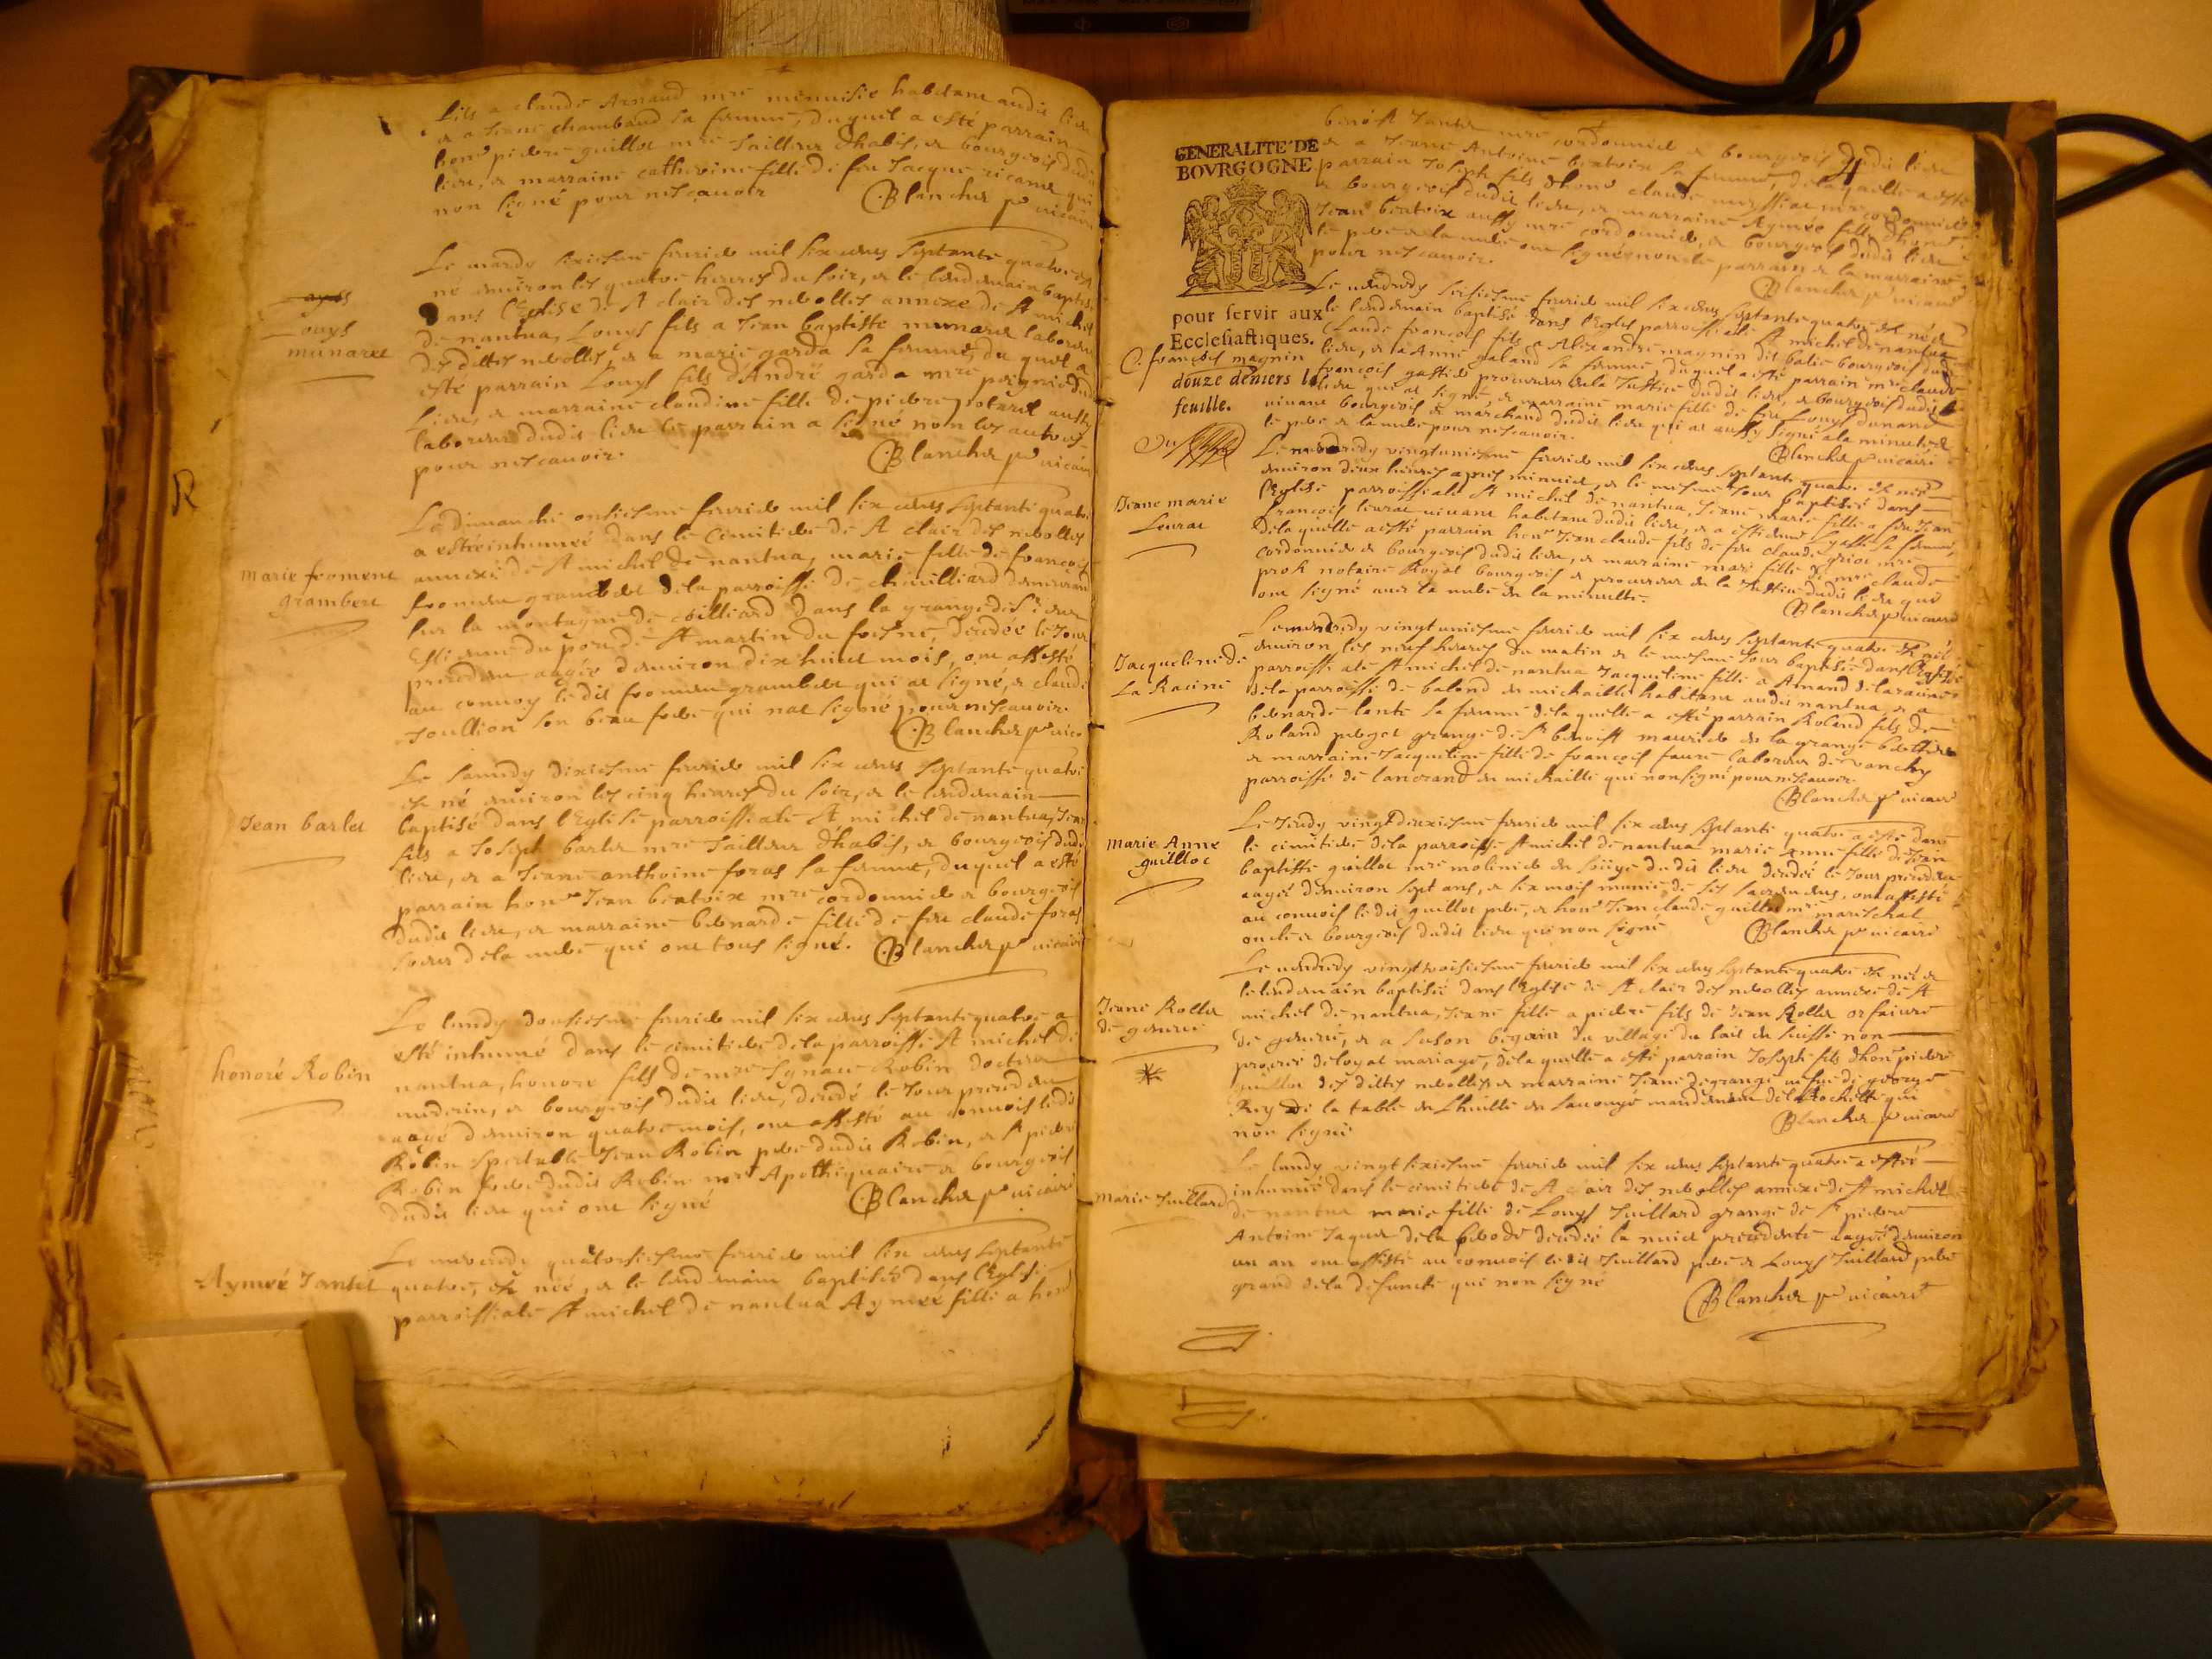 fils a claude Arnaud mre menuisie habitant audit lieu
et a Jeane chambaud sa femme, duquel a esté parrain
hon pierre guillot mre Tailleur d'habis, et bourgeois dudi
lieu, et marraine catherine fille de feu Jacque ricand qui
non signé pour nescavoir
Blanchet pre vicaire
Le mardy sixiesme feurier mil six cens septante quatre est
né environ les quatre heures du soir, et le lendemain baptisé
dans l'Eglise de St clair des nerolles annexe de St michel
Louys
munaret
de nantua, Louys fils a Jean baptiste munaret laboureu
des dittes nerolles, et a marie garda sa femme, du quel a
esté parrain Louys fils d'André garda mre peignie dudi
lieu, et marraine claudine fille de pierre potaret aussy
laboureur dudit lieu le parrain a signé non les autres
pour nescavoir.
Blanchet pre vicaire
R
Le dimanche onsiesme feurier mil six cens septante quatre
a esté inhumeé dans le cimitiere de St clair des nerolles
marie froment
grambert
annexe de St michel de nantua, marie fille de francois
froment grambert dela parroisse de chevilliard demeurant
sur la montagne de colliard dans la grange de Sr
Estienne du port de St martin du fresne, decedée le Jour
precedent aagée d'environ dix huict mois, ont assisté
au convoy ledit froment grambert qui at signé, et claude
Joullion son beau frere qui nat signé pour nescavoir.
Blanchet pre vica
Le samedy dixiesme feurier mil six cens septante quatre
est né environ les cinq heures du soir, et le lendemain
Jean barlet
baptisé dans l'Eglise parroissiale St michel de nantua, Jean
fils a Joseph barlet mre Tailleur d'habis, et bourgeois dudi
lieu, et a Jeane anthoine foras sa femme, duquel a esté
parrain hon Jean beatrix mre cordonnier et bourgeois
dudit lieu, et marraine bernarde fille de feu claude foras
soeur dela mere qui ont tous signé.
Blanchet pre vicaire
Le lundy dousiesme feurier mil six cens septante quatre a
esté inhumé dans le cimitiere dela parroisse St michel de
honoré Robin
nantua, honoré fils de mre Ignace Robin docteur
medecin, et bourgeois dudit lieu, decedé le Jour precedent
aagé d'environ quatre mois, ont assisté au convois ledit
Robin spectable Jean Robin pere dudit Robin, et Sr pierre
Robin frere dudit Robin mre Apothiquaire et bourgeois
dudit lieu qui ont signé
Blanchet pre vicaire
Le mercredy quatorsiesme feurier mil six cens septante
Aymeé Jantet
quatre, est née, et le lendemain baptisée dans l'Eglise
parroissiale St michel de nantua Aymeé fille a hon
benoist Jantet mre cordonnier et bourgeois dudit lieu
GENERALITE' DE
BOVRGOGNE
et a Jeane Antoine beatrix sa femme, delaquelle a esté
parrain Joseph fils d'hon claude mre cordonnier
et bourgeois dudit lieu, et marraine Aymeé fille d'hon
Jean beatrix aussy mre cordonnier, et bourgeois dudit lieu
le pere et la mere ont signé non le parrain et la marraine
pour nescavoir.
Blanchet pre vicaire
Le vendredy seiziesme feurier mil six cens septante quatre est né et
pour servir aux
Ecclesiastiques.
le lendemain baptisé dans l'Eglise parroissiale St michel de nantua
C. francois magnin
Claude francois fils a Alexandre magnin dit balie bourgeois dudi
lieu, et a Anne galand sa femme, duquel a esté parrain mre claude
douze deniers la
feuille.
francois gastie procureur dela Justice dudit lieu, et bourgeois dudit
lieu qui at signé, et marraine marie fille de feu Louys dunand
vivant bourgeois et marchand dudit lieu qui at aussy signé ala minute et
le pere et la mere pour nescavoir.
Blanchet pre vicaire
Le mercredy vingtuniesme feurier mil six cens septante quatre est née
environ deux heures apres minuict, et le mesme Jour baptisée dans
Jeane marie
Leurat
l'Eglise parroissiale St michel de nantua, Jeane marie fille a feu Jean
francois leurat vivant habitant dudit lieu, et a estienne gassi sa femme,
delaquelle a esté parrain hon Jean claude fils de feu claude griot mre
cordonnier et bourgeois dudit lieu, et marraine marie fille de mre claude
prost notaire Royal bourgeois et procureur de la Justice dudit lieu qui
ont signé avec la mere en la minutte.
Blanchet pre vicaire
Le mercredy vingt uniesme feurier mil six cens septante quatre est née
environ les neuf heures du matin et le mesme Jour baptisée dans l'Eglise
Jacqueline de
La Racine
parroissiale St michel de nantua Jacqueline fille a Amand delaracine
dela parroisse de balond en michaille habitant audit nantua, et a
bernarde lente sa femme dela quelle a esté parrain Roland fils de
Roland perget grange de Sr benoist maurier de la grange
et marraine Jacqueline fille de francois favre laboureur de vanchy
parroisse de lancrand en michaille qui non signé pour nescavoir.
Blanchet pre vicaire
Le Jeudy vingt deuxiesme feurier mil six cens septante quatre a esté dans
Marie Anne
guilloc
le cimitiere dela parroisse St michel de nantua marie Anne fille de Jean
baptiste guillot mre molinier en soüye dudit lieu decedée le Jour precedent
aagée d'environ sept ans, et six mois munie de ses sacremens, ont assisté
au convois ledit guillot pere, et hon Jean claude guillot mre mareschal
oncle et bourgeois dudit lieu qui non signé
Blanchet pre vicaire
Le vendredy vingttroisiesme feurier mil six cens septante quatre est née et
le lendemain baptisée dans l'Eglise de St clair des nerolles annexe de St
Jeane Rollet
de geneve
michel de nantua, Jeane fille a pierre fils de Jean Rollet orfaivre
de geneve, et a Suson begoin du village du Sait en suisse non
*
procreé de loyal mariage, dela quelle a esté parrain Joseph fils d'hon pierre
guillot des dittes nerolles et marraine Jeane degrange vefve de george
Rey de la table en en savoye mandement dela Rochette qui
non signé
Blanchet pre vicaire
Le lundy vingtsixiesme feurier mil six cens septante quatre a esteé
Marie Juillard
inhumée dans le cimitiere de St clair des nerolles annexe de St michel
de nantua marie fille de Louys Juillard grange de Sr pierre
Antoine Jaquet dela decedée la nuict precedente aagée d'environ
un an ont assisté au convois ledit Juillard pere et Louys Juillard pere
grand dela defuncte qui non signé
Blanchet pre vicaire